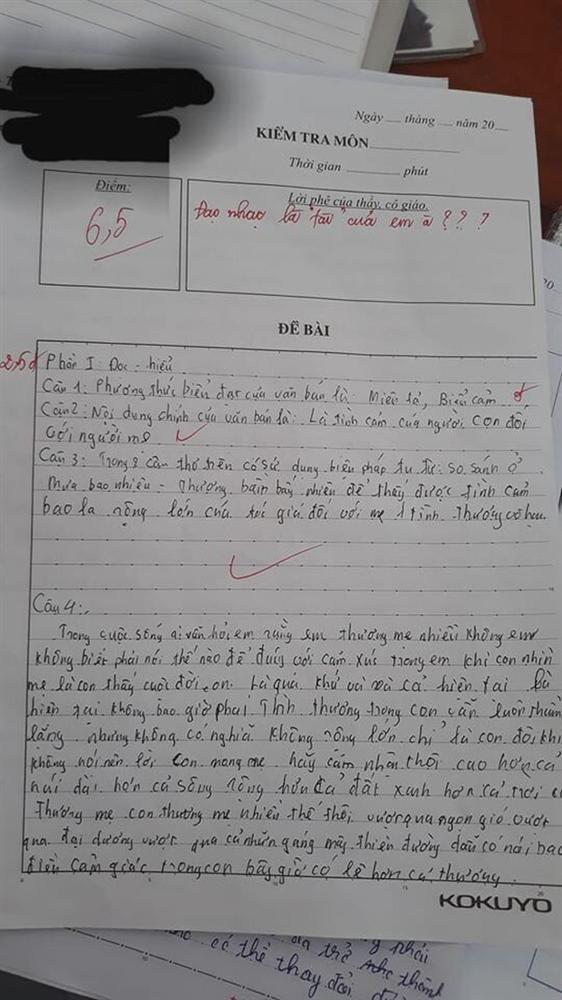 Ngày ___ tháng ___ năm 20 ___
KIỂM TRA MÔN
Thời gian ___ phút
Điểm:
6,5
Lời phê của thầy, cô giáo.
Đạo nhạc là "tài" của em à ? ? ?
ĐỀ BÀI
2,5đ Phần I: Đọc - hiểu
Câu 1: Phương thức biểu đạt của văn bản là: Miêu tả, Biểu cảm
Câu 2: Nội dung chính của văn bản là: Là tình cảm của người con đối
với người mẹ
Câu 3: Trong 2 câu thơ trên có sử dụng biện pháp tu từ: so sánh ở
Mưa bao nhiêu - Thương bấy nhiêu để thấy được tình cảm
bao la rộng lớn của tác giả đối với mẹ 1 tình thương vô hạn
Câu 4:
Trong cuộc sống ai vẫn hỏi em rằng em thương mẹ nhiều không em
không biết phải nói thế nào để đúng với cảm xúc trong em khi con nhìn
mẹ là con thấy cuộc đời con. Là quá khứ và và cả hiện tại là
hiện tại không bao giờ phai Tình thương trong con vẫn luôn thầm
lặng nhưng không có nghĩa không rộng lớn chỉ là con đôi khi
không nói nên lời con mong mẹ hãy cảm nhận thôi cao hơn cả
núi dài hơn cả sông rộng hơn cả đất xanh hơn cả trời
Thương mẹ con thương mẹ nhiều thế thôi vượt qua ngọn gió vượt
qua đại dương vượt qua cả những áng mây thiên đường dẫu có nói bao
điều cảm giác trong con bây giờ có lẽ hơn cả thương.
KOKUYO
có thể thay đổi